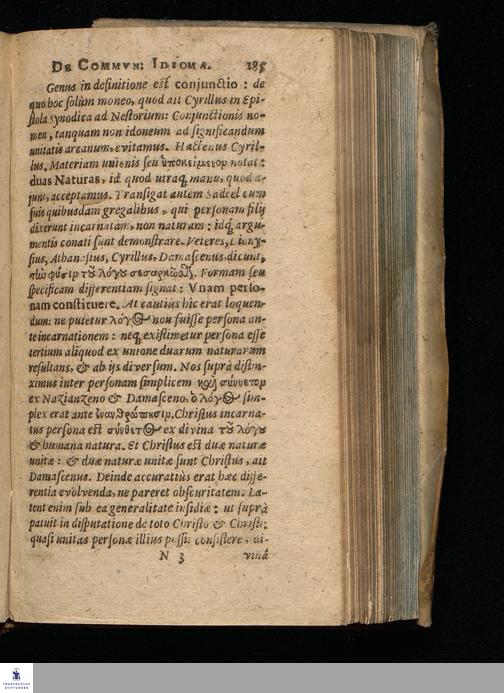 DE COMMVN: IDIOMA. 185
Genus in definitione est conjunctio: de
quo hoc solùm moneo, quod ait Cyrillus in Epi-
stola synodica ad Nestorium: Conjunctionis no-
men, tanquam non idoneum ad significandum
unitatis arcanum, evitamus. Hactenus Cyril-
lus. Materiam unionis seu ὑποκείμενον notat:
duas Naturas, id quod utraq; manu, quod a-
junt, acceptamus. Transigat autem Sadeel cum
suis quibusdam gregalibus, qui personam filij
dixerunt incarnatam, non naturam: idq; argu-
mentis conati sunt demonstrare. Veteres, Diony-
sius, Athanasius, Cyrillus, Damascenus dicunt,
τὴν φύσιν τοῦ λόγου σεσαρκῶσθαι. Formam seu
specificam differentiam signat: Vnam perso-
nam constituere. At cautiùs hîc erat loquen-
dum: ne putetur λόγος non fuisse persona an-
te incarnationem: neq; existimetur persona esse
tertium aliquod ex unione duarum naturarum
resultans, & ab ijs diversum. Nos suprà distin-
ximus inter personam simplicem καὶ σύνθετον
ex Nazianzeno & Damasceno, ὁ λόγος sim-
plex erat ante ἐνανθρώπησιν. Christus incarna-
tus persona est σύνθετος ex divina τοῦ λόγου
& humana natura. Et Christus est duæ naturæ
unitæ: & duæ naturæ unitæ sunt Christus, ait
Damascenus. Deinde accuratiùs erat hæc diffe-
rentia evolvenda, ne pareret obscuritatem. La-
tent enim sub ea generalitate insidiæ: ut suprà
patuit in disputatione de toto Christo & Christi:
quasi unitas personæ illius possit consistere, di-
N 3 vinâ
FRANCKESCHE
STIFTUNGEN